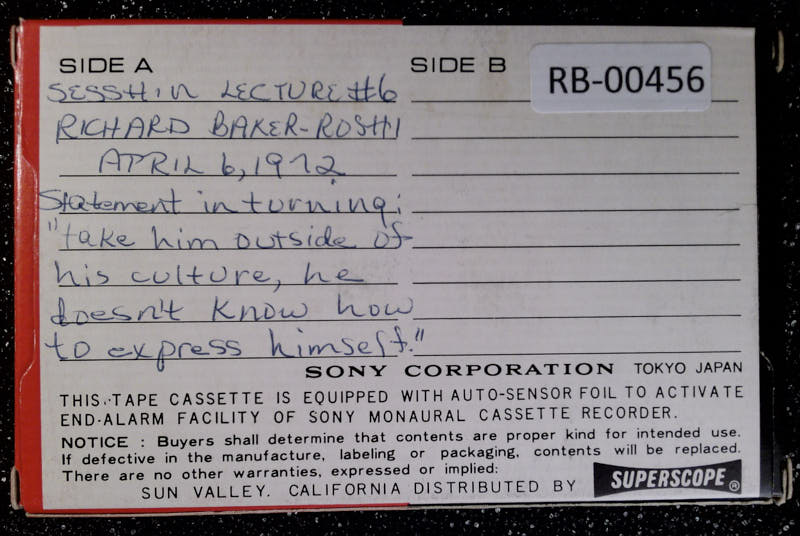 SIDE A
SESSHIN LECTURE #6
RICHARD BAKER-ROSHI
APRIL 6, 1972
Statement in turning:
"take him outside of
his culture, he
doesn't know how
to express himself."
SIDE B
RB-00456
SONY CORPORATION TOKYO JAPAN
THIS TAPE CASSETTE IS EQUIPPED WITH AUTO-SENSOR FOIL TO ACTIVATE
END-ALARM FACILITY OF SONY MONAURAL CASSETTE RECORDER.
NOTICE : Buyers shall determine that contents are proper kind for intended use.
If defective in the manufacture, labeling or packaging, contents will be replaced.
There are no other warranties, expressed or implied:
SUN VALLEY. CALIFORNIA DISTRIBUTED BY SUPERSCOPE®